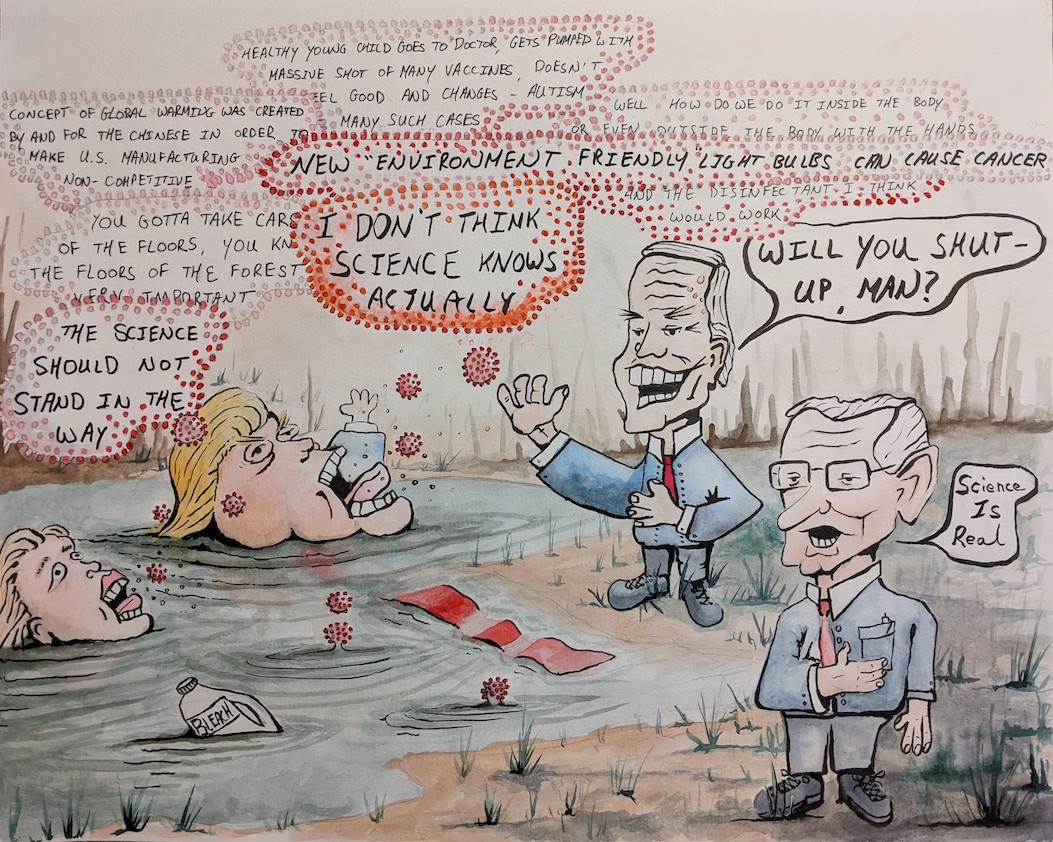 HEALTHY YOUNG CHILD GOES TO DOCTOR, GETS PUMPED WITH
MASSIVE SHOT OF MANY VACCINES, DOESN'T
EL GOOD AND CHANGES - AUTISM
MANY SUCH CASES
CONCEPT OF GLOBAL WARMING WAS CREATED
BY AND FOR THE CHINESE IN ORDER TO
MAKE U.S. MANUFACTURING
NON-COMPETITIVE
WELL HOW DO WE DO IT INSIDE THE BODY
OR EVEN OUTSIDE THE BODY WITH THE HANDS
NEW "ENVIRONMENT FRIENDLY" LIGHT BULBS CAN CAUSE CANCER
AND THE DISINFECTANT I THINK
WOULD WORK
YOU GOTTA TAKE CARE
OF THE FLOORS, YOU KN
THE FLOORS OF THE FOREST
VERY IMPORTANT
I DON'T THINK
SCIENCE KNOWS
ACTUALLY
WILL YOU SHUT-
UP, MAN?
THE SCIENCE
SHOULD NOT
STAND IN THE
WAY
Science
Is
Real
BLEACH